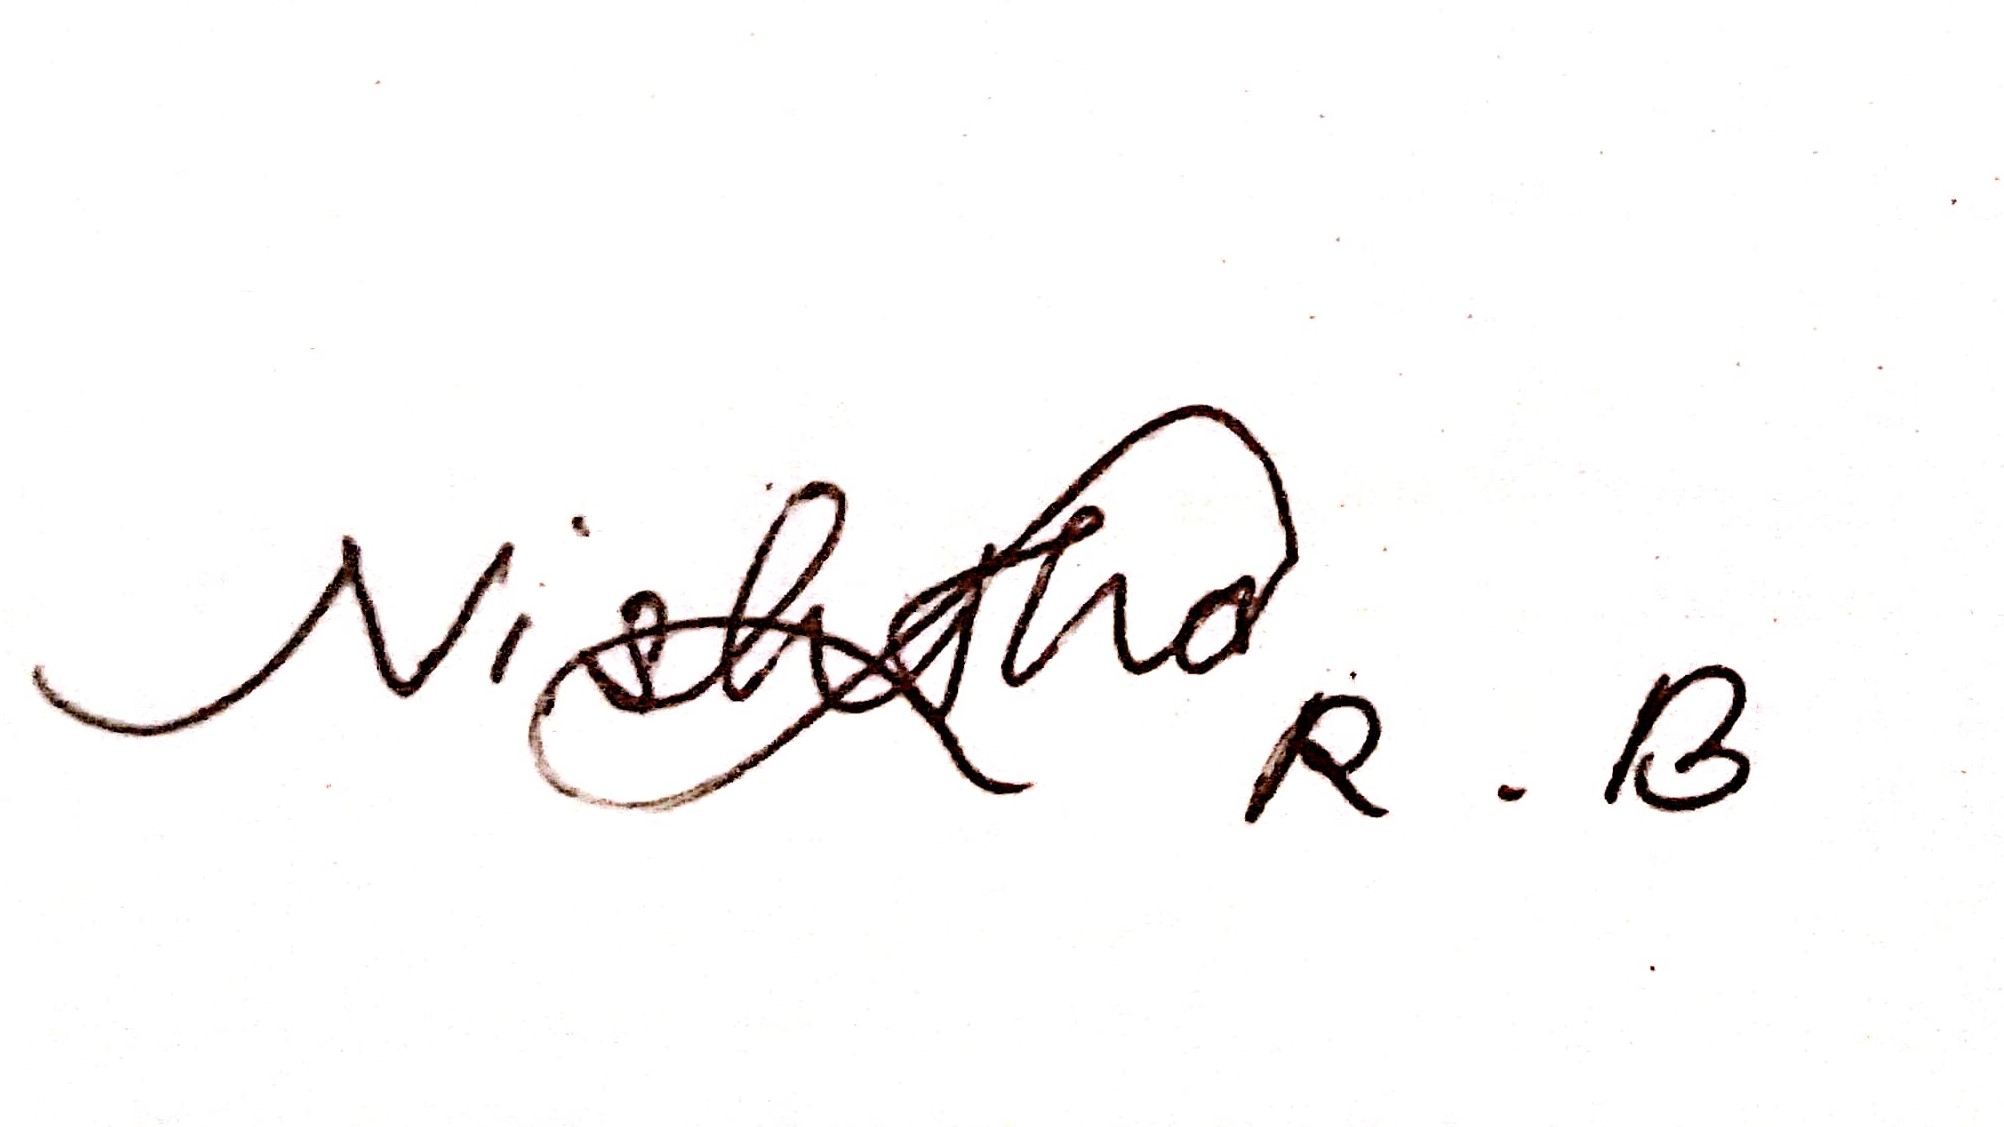 Nishatha R . B